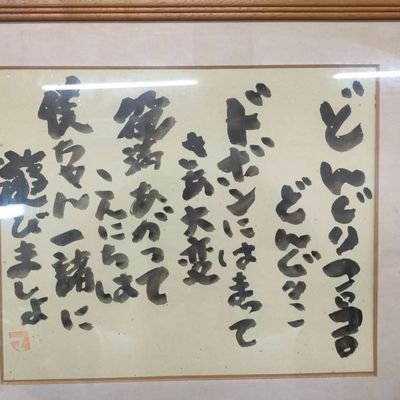 どんぐりころころ
どんぐりこ
ドボンにはまって
さあ大変
満あがって
こんにちは
ちゃん一緒に
遊びましょ